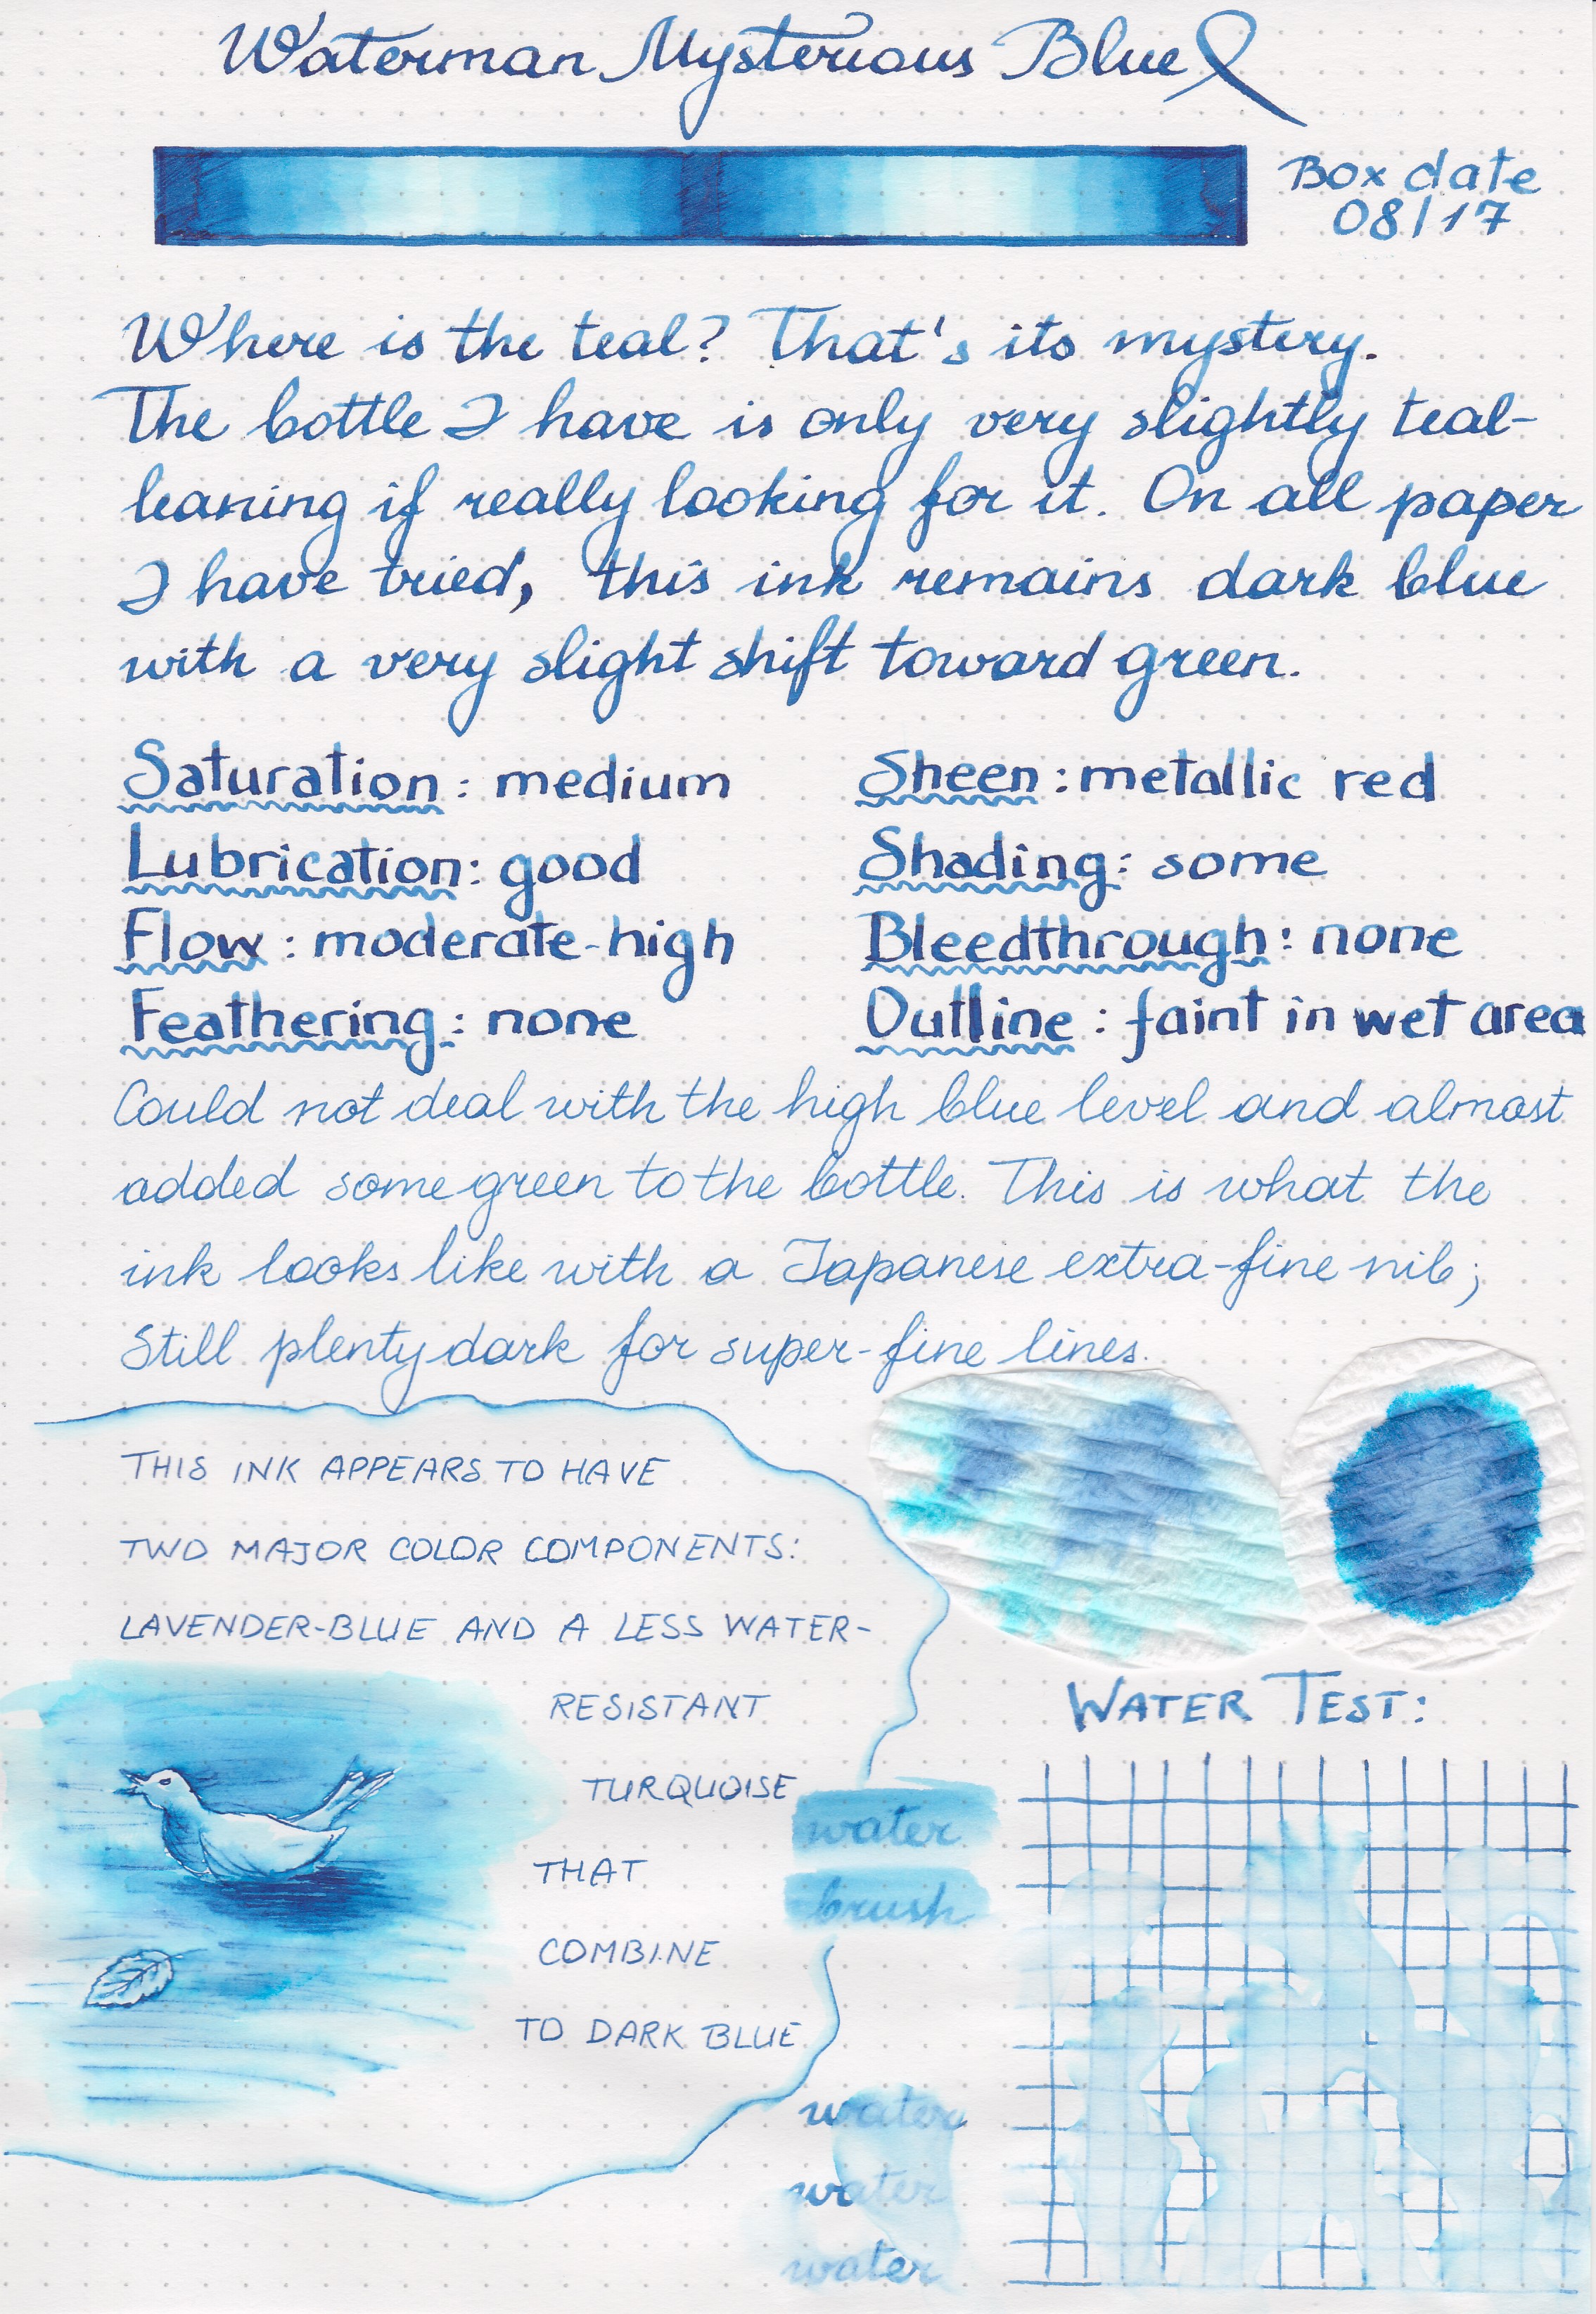 Waterman Mysterious Blue
Box date
08/17
Where is the teal? That's its mystery.
The bottle I have is only very slightly teal-
leaning if really looking for it. On all paper
I have tried, this ink remains dark blue
with a very slight shift toward green.
Saturation: medium
Sheen: metallic red
Lubrication: good
Shading: some
Flow: moderate-high
Bleedthrough: none
Feathering: none
Outline: faint in wet area
Could not deal with the high blue level and almost
added some green to the bottle. This is what the
ink looks like with a Japanese extra-fine nib;
Still plenty dark for super-fine lines.
THIS INK APPEARS TO HAVE
TWO MAJOR COLOR COMPONENTS:
LAVENDER-BLUE AND A LESS WATER-
RESISTANT
TURQUOISE
THAT
COMBINE
TO DARK BLUE
water
brush
water
water
water
WATER TEST: